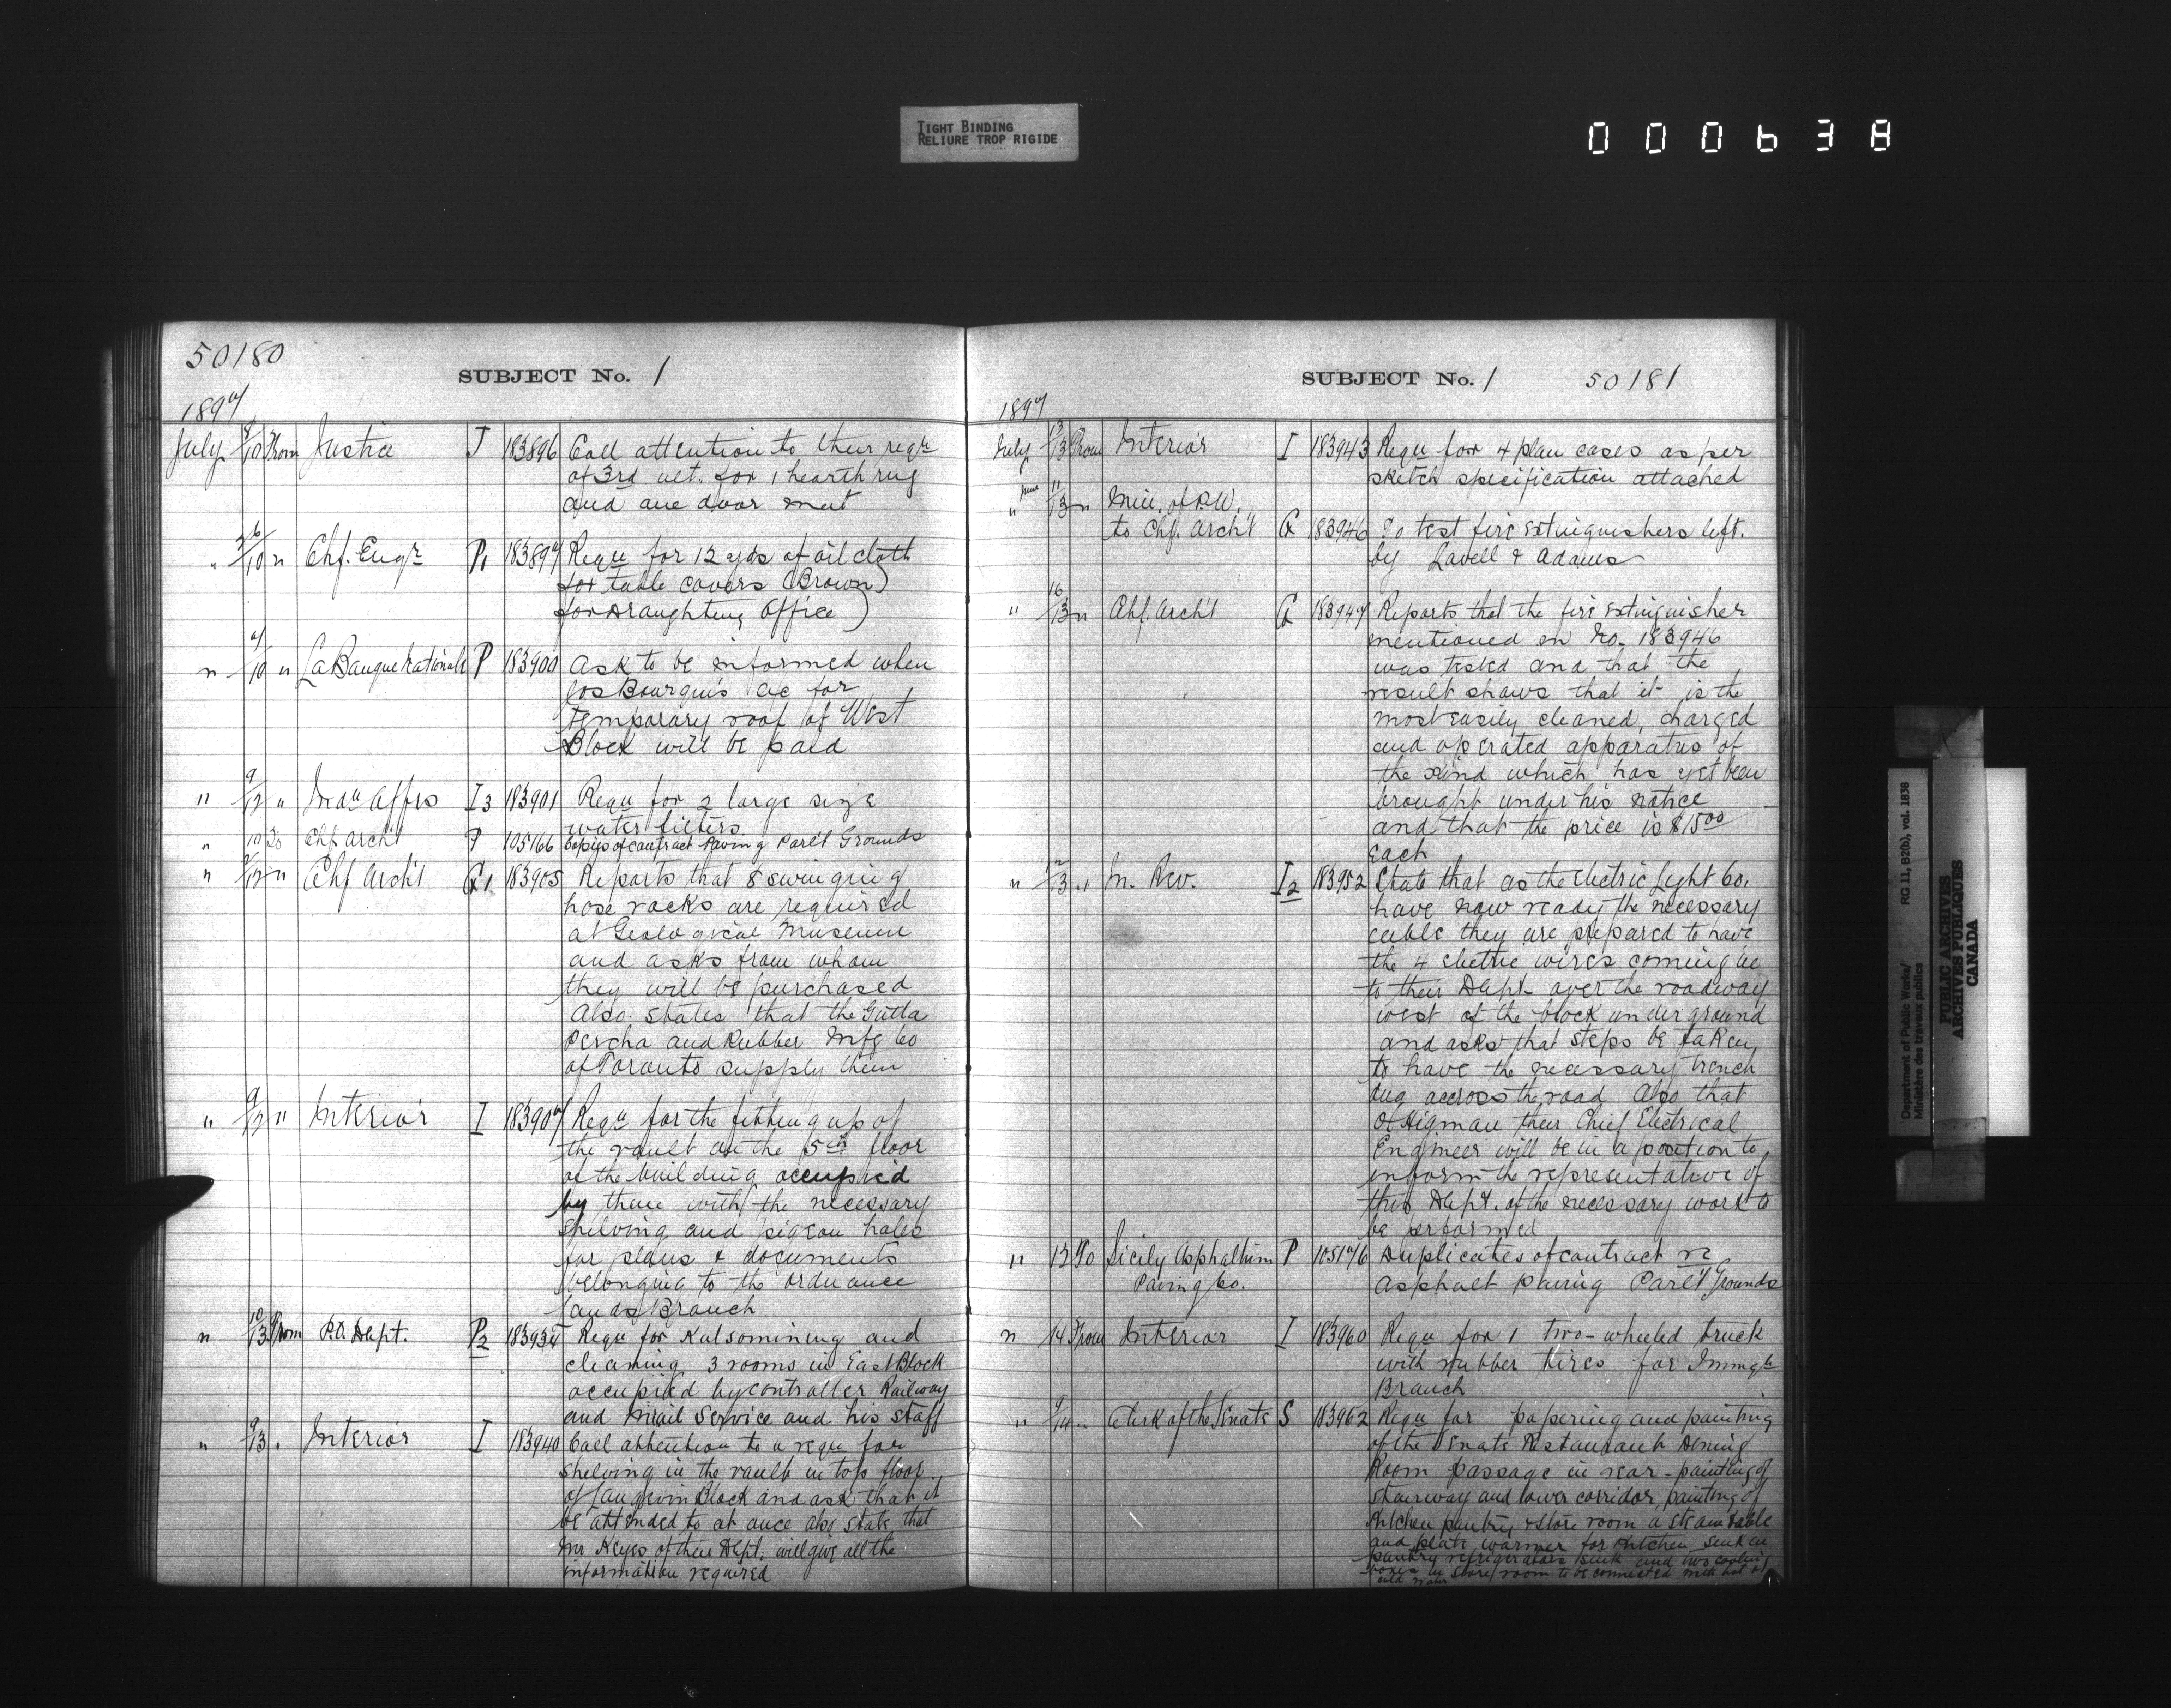 TIGHT BINDING
RELIURE TROP RIGIDE
000638
50180
SUBJECT No. 1
1897
July 8/10 From Justice J 183896 Call attention to their reqn
of 3rd ult. for 1 hearth rug
and one door mat
" 26/10 " Chf. Engr P1 183897 Requ for 12 yds of oil cloth
for table covers (Brown)
for Draughting Office)
" 7/10 " La Banque Nationale P 183900 Ask to be informed when
Jos Bourque's a/c for
temporary roof of West
Block will be paid
" 9/12 " Indn Affrs I3 183901 Requ for 2 large size
water filters
" 10 To Chf Archt P 105166 Copies of contract Paving Parlt Grounds
" 9/12 " Chf Archt G1 183905 Reports that 8 swinging
hose racks are required
at Geological Museum
and asks from whom
they will be purchased
Also states that the Gutta
Percha and Rubber Mfg Co
of Toronto supply them
" 9/12 " Interior I 183907 Requ for the fitting up of
the vault on the 5th floor
of the building occupied
by them with the necessary
shelving and pigeon holes
for plans & documents
belonging to the Ordnance
lands Branch
" 10/13 From P.O. Dept. P2 183934 Requ for Kalsomining and
cleaning 3 rooms in East Block
occupied by controller Railway
and Mail Service and his staff
" 9/13 " Interior I 183940 Call attention to a requ for
shelving in the vault in top floor
of Langevin Block and ask that it
be attended to at once also state that
Mr Keyes of their Dept. will give all the
information required
SUBJECT No. 1 50181
1897
July 13/13 From Interior I 183943 Requ for 4 plan cases as per
sketch specification attached
" June 11/13 " Min. of P.W.
to Chf. Archt G 183946 To test fire extinguishers left
by Lavell & Adams
" 16/13 " Chf. Archt G 183947 Reports that the fire extinguisher
mentioned in No. 183946
was tested and that the
result shows that it is the
most easily cleaned, charged
and operated apparatus of
the kind which has yet been
brought under his notice
and that the price is $15.00
each
" 12/13 " In. Rev. I2 183952 State that as the Electric Light Co.
have now ready the necessary
cable they are prepared to have
the 4 electric wires coming
to their Dept over the roadway
west of the block underground
and asks that steps be taken
to have the necessary trench
dug accross the road Also that
O Higman their Chief Electrical
Engineer will be in a position to
inform the representative of
this Dept. of the necessary work to
be performed
" 13 To Sicily Asphaltum P 105176 Duplicates of contract re
Paving Co. Asphalt paving Parlt Grounds
" 14 From Interior I 183960 Requ for 1 two-wheeled truck
with rubber tires for Immgtn
Branch
" 9/14 " Clerk of the Senate S 183962 Requ for papering and painting
of the Senate Restaurant Dining
Room passage in rear - painting of
stairway and lower corridor, painting of
Kitchen pantry & store room a steam table
and plate warmer for Kitchen sink in
pantry refrigerators sink and two cooling
boxes in store room to be connected with hot &
cold water
Department of Public Works/
Ministère des travaux publics
RG 11, B2(b), vol. 1838
PUBLIC ARCHIVES
ARCHIVES PUBLIQUES
CANADA